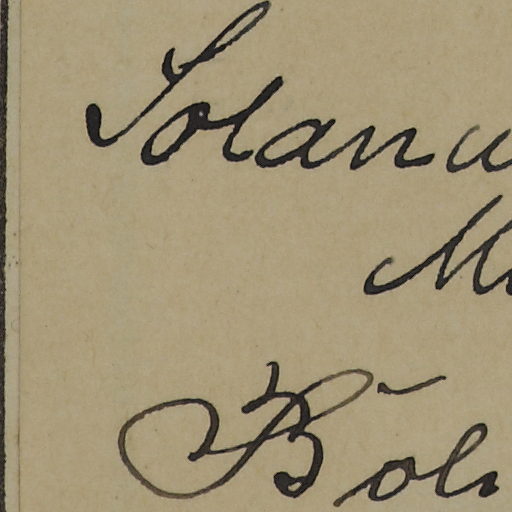 Solanu
M
Böh